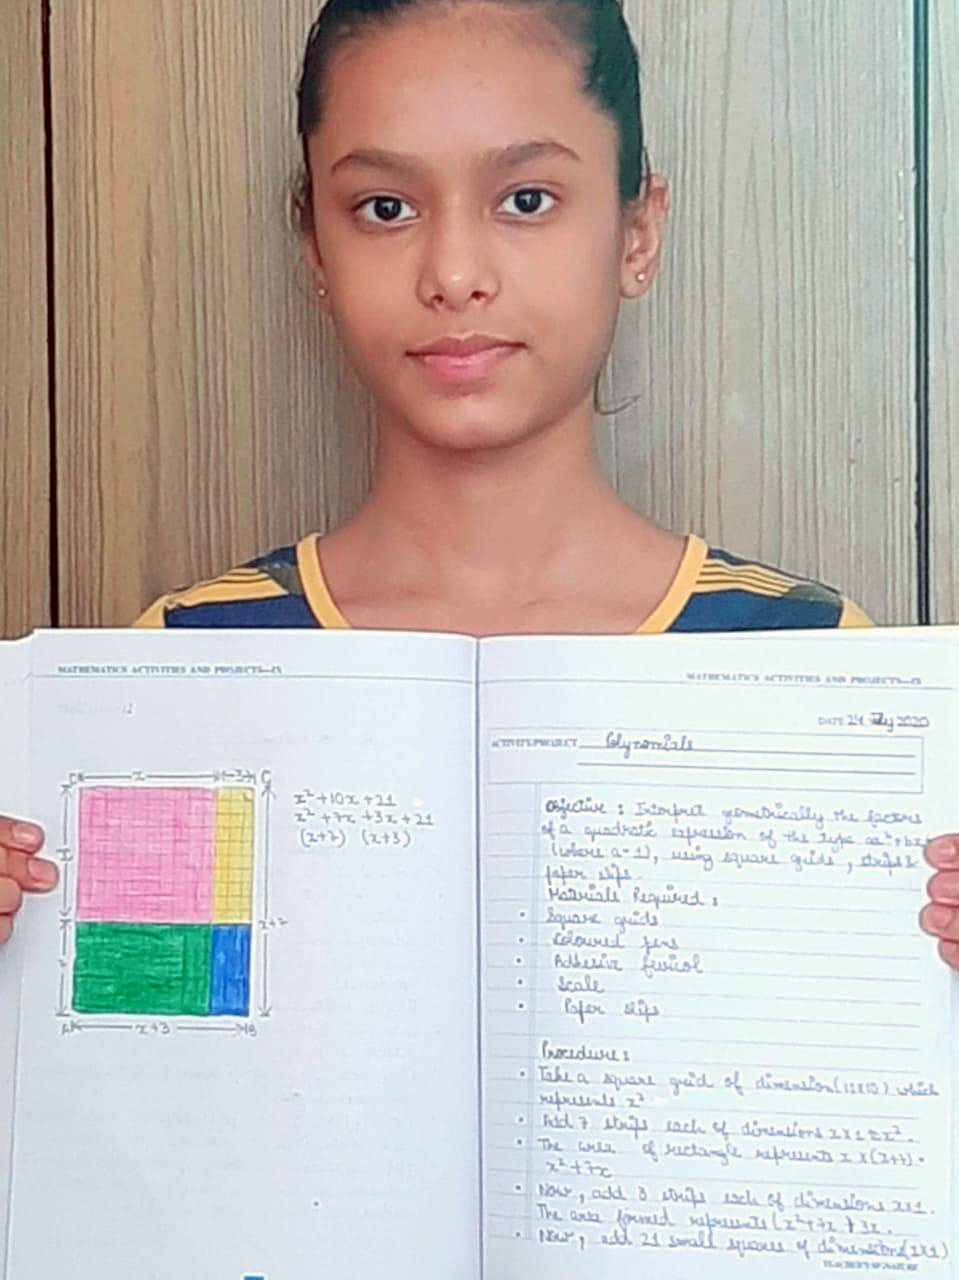 MATHEMATICS ACTIVITIES AND PROJECTS—IX
D x 3 C
x²+10x+21
x²+7x+3x+21
(x+7) (x+3)
x
x+7
7
A x+3 B
MATHEMATICS ACTIVITIES AND PROJECTS—IX
DATE 24 July 2020
ACTIVITY/PROJECT Polynomials
Objective : Interpret geometrically the factors
of a quadratic expression of the type ax²+bx
(where a=1), using square grids, strips &
paper slips.
Materials Required :
• Square grids
• Coloured pens
• Adhesive fevicol
• Scale
• Paper slips
Procedure :
• Take a square grid of dimension (10x10) which
represents x²
• Add 7 strips each of dimensions x x 1
• The area of rectangle represents x x (x+7) =
x²+7x
• Now, add 3 strips each of dimensions x x 1.
The area formed represents (x²+7x+3x.
• Now, add 21 small squares of dimensions (1x1)
TEACHER'S SIGNATURE